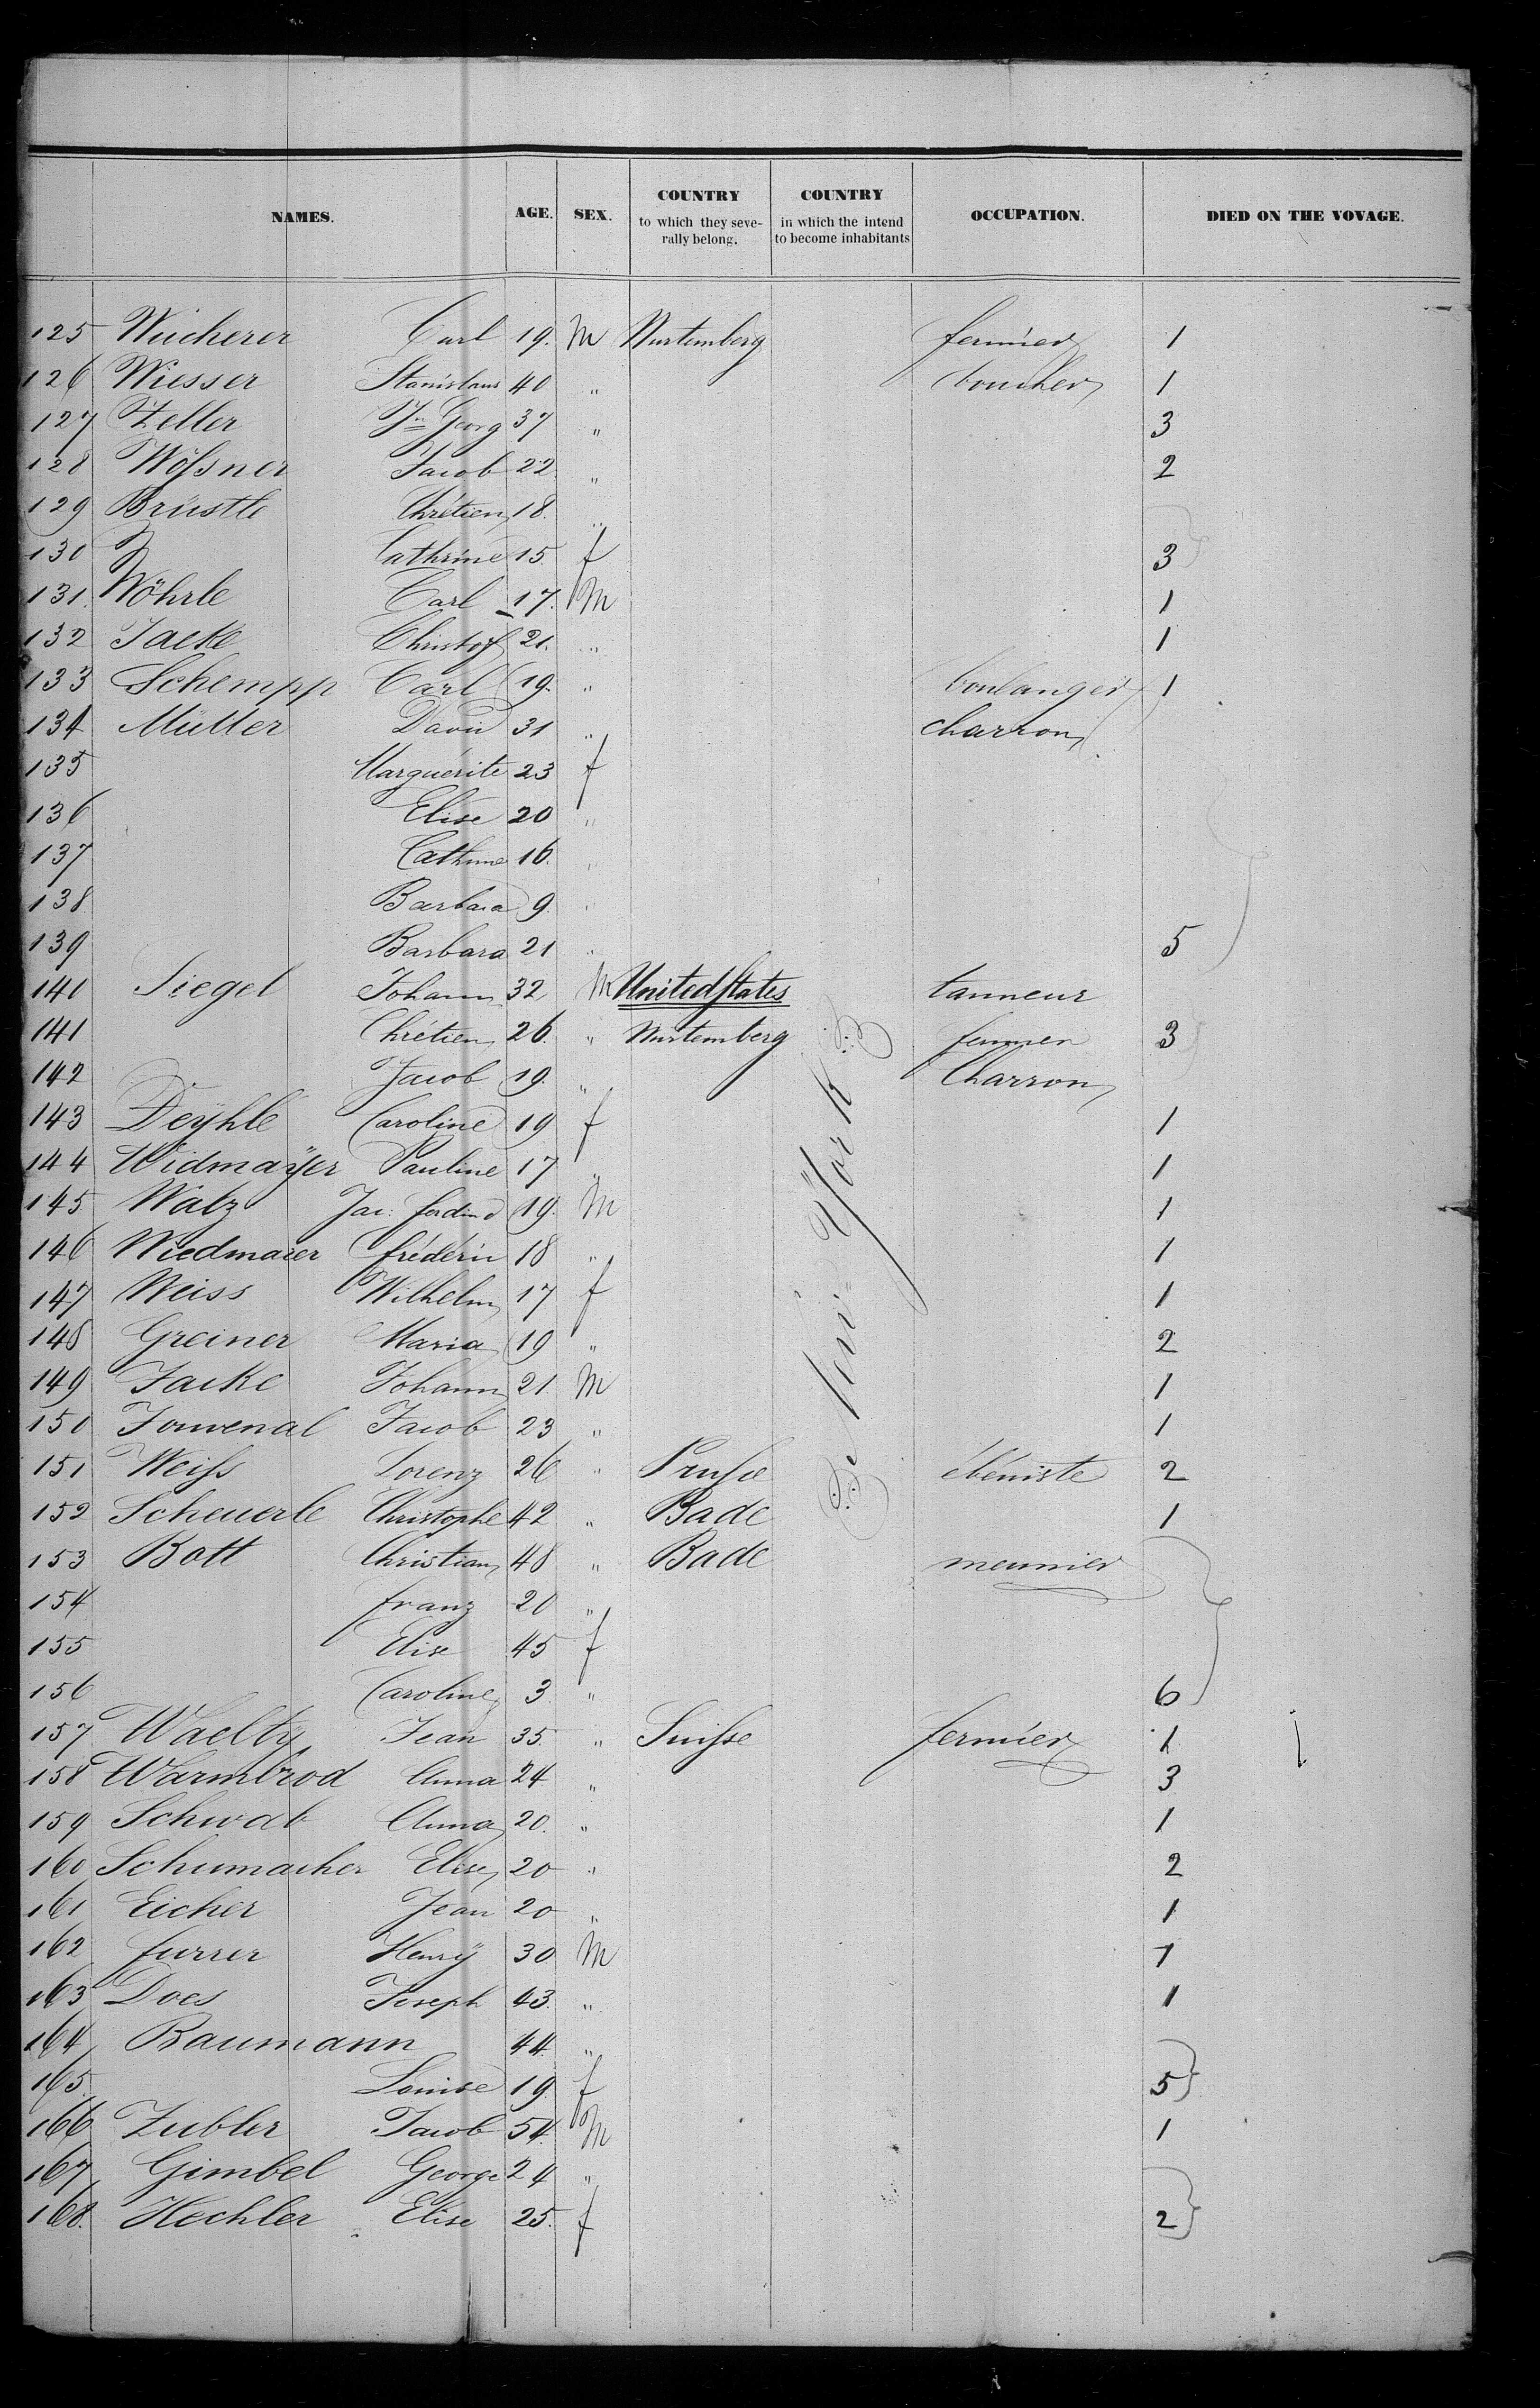 NAMES. AGE. SEX. COUNTRY to which they seve- rally belong. COUNTRY in which the intend to become inhabitants OCCUPATION. DIED ON THE VOVAGE.
125 Wucherer Carl 19. M Wurtemberg fermier 1
126 Wiesser Stanislaus 40 " boucher 1
127 Zeller Jn Georg 37 " 3
128 Wößner Jacob 22 " 2
129 Brüstle Chrétien 18. "
130 " Cathrine 15. f 3
131. Wöhrle Carl 17. M 1
132 Jacke Christof 21. " 1
133 Schempp Carl 19. " boulanger 1
134 Müller David 31 " charron
135 Marguérite 23 f
136 Elise 20 "
137 Cathrine 16. "
138 Barbara 9. "
139 Barbara 21 " 5
140 Siegel Johann 32 M United States tanneur
141 Chrétien 26. " Wurtemberg fermier 3
142 Jacob 19. " Charron
143 Deÿhle Caroline 19 f 1
144 Widmaÿer Pauline 17 " 1
145 Walz Jac. ferdind 19. M 1
146 Wiedmaier fréderic 18 " 1
147 Weiss Wilhelm 17 f 1
148 Greiner Maria 19 " 2
149 Jacke Johann 21. M 1
150 Jouvenal Jacob 23 " 1
151 Weiß Lorenz 26 " Pruße ébéniste 2
152 Scheuerle Christophe 42 " Bade 1
153 Bott Christian 48 " Bade meunier
154 franz 20 "
155 Elise 45 f
156 Caroline 3. " 6
157 Waelty Jean 35. " Suiße fermier 1
158 Warmbrod Anna 24 " 3
159 Schwab Anna 20. " 1
160 Schumacher Elise 20 " 2
161 Eicher Jean 20 " 1
162 furrer Henrÿ 30 M 1
163 Does Joseph 43. " 1
164 Baumann 44. "
165. Louise 19 f 5
166 Zubler Jacob 54. M 1
167 Gimbel George 24 "
168. Hechler Elise 25. f 2
New-York